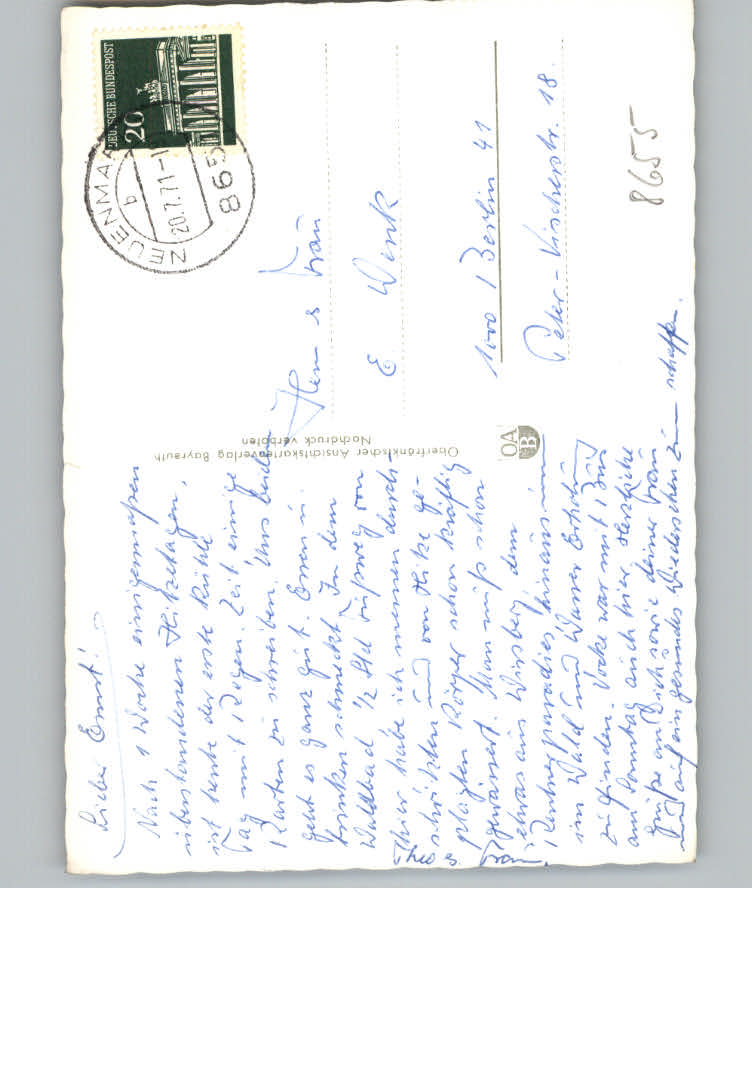 Lieber Ernst!
Nach 1 Woche einigermaßen
überstandenen Hitzetagen,
ist heute der erste kühle
Tag mit Regen. Zeit einige
Karten zu schreiben. Uns beiden
geht es ganz gut. Essen u.
trinken schmeckt. In dem
Waldbad 1/2 Std Fußweg von
hier habe ich meinen durch-
schwitzten und von Hitze ge-
plagten Körper schon kräftig
gewässert. Man muß schon
etwas aus Wirsberg dem
Rentnerparadies hinaus um
im Wald und Wasser Erholung
zu finden. war mit 1 Bus
am Sonntag auch hier. Herzliche
Grüße an Dich sowie deiner Frau
und auf ein gesundes Wiedersehen zum schaffen.
Theo & Frau.
Oberfränkischer Ansichtskartenverlag Bayreuth
Nachdruck verboten
OA
B
DEUTSCHE BUNDESPOST
20
NEUENMA
b
20.7.71-1
865
Herrn & Frau
E Wenk
1000 / Berlin 41
Peter-Vischerstr. 18.
8655